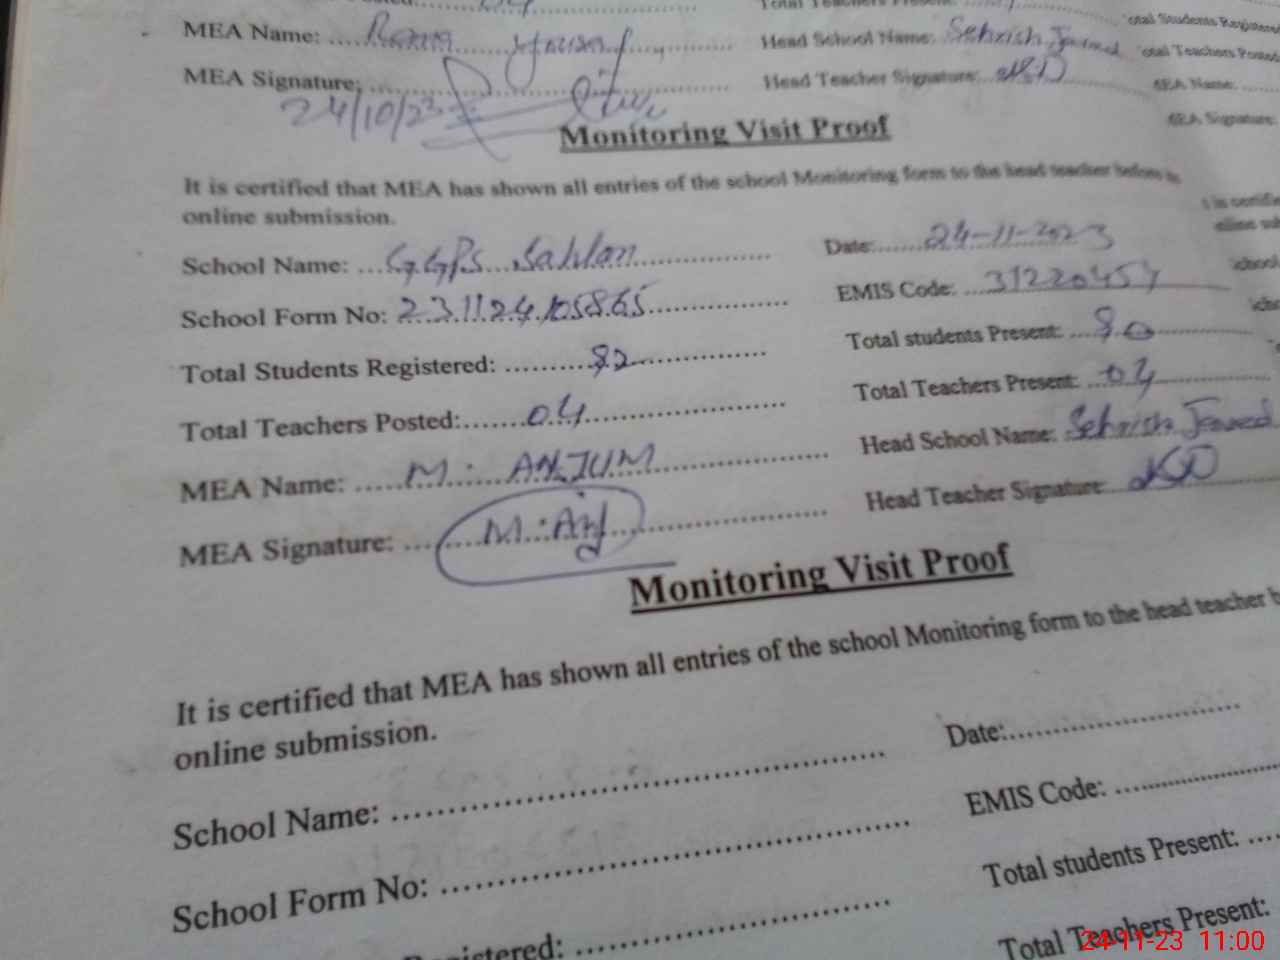 MEA Name: ................ Head School Name: Sehrish Javed
MEA Signature: ................ Head Teacher Signature:
24/10/23
Monitoring Visit Proof
It is certified that MEA has shown all entries of the school Monitoring form to the head teacher before
online submission.
School Name: ...G.GPS Sahlan................ Date:......24-11-2023
School Form No: 231124105865................ EMIS Code: ...31220454
Total Students Registered: ..........82................ Total students Present: ...80................
Total Teachers Posted:.......04................ Total Teachers Present: ..04................
MEA Name: ......M. ANJUM................ Head School Name: Sehrish Javed
MEA Signature: .......M. Anj................ Head Teacher Signature:
Monitoring Visit Proof
It is certified that MEA has shown all entries of the school Monitoring form to the head teacher b
online submission.
School Name: ................................ Date:................
School Form No: ................................ EMIS Code: ................
Registered: ................................ Total students Present: ....
Total Teachers Present:
24-11-23 11:00